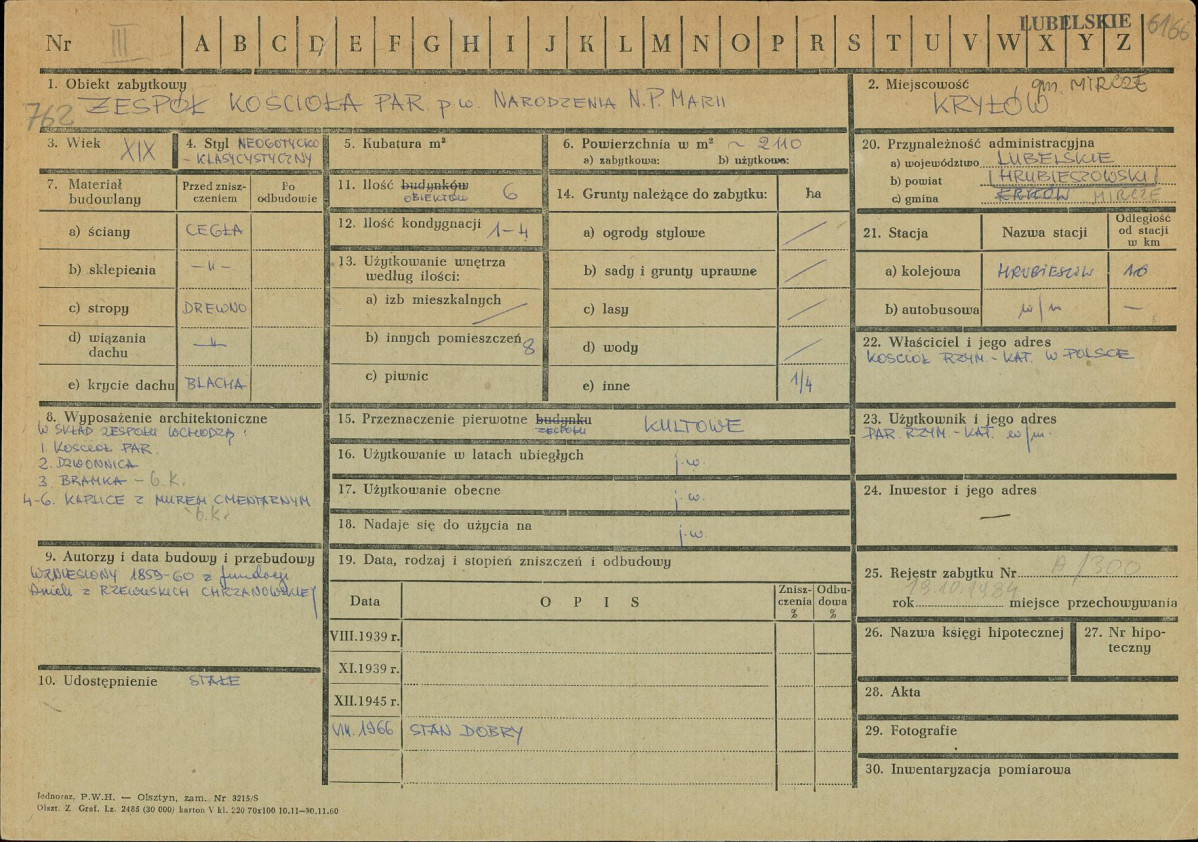 LUBELSKIE
6166
Nr III A B C D E F G H I J K L M N O P R S T U V W X Y Z
1. Obiekt zabytkowy
762 ZESPÓŁ KOŚCIOŁA PAR. p.w. NARODZENIA N.P. MARII
2. Miejscowość gm. MIRCZE
KRYŁÓW
3. Wiek XIX
4. Styl NEOGOTYCKO
- KLASYCYSTYCZNY
5. Kubatura m³
6. Powierzchnia w m² ~ 2110
a) zabytkowa: b) użytkowa:
7. Materiał budowlany
Przed zniszczeniem
Po odbudowie
a) ściany CEGŁA
b) sklepienia -„-
c) stropy DREWNO
d) wiązania dachu -„-
e) krycie dachu BLACHA
8. Wyposażenie architektoniczne
W SKŁAD ZESPOŁU WCHODZĄ:
1. KOŚCIÓŁ PAR.
2. DZWONNICA
3. BRAMKA - b.k.
4-6. KAPLICE Z MUREM CMENTARNYM
b.k.
9. Autorzy i data budowy i przebudowy
WZNIESIONY 1859-60 z fundacji
Anieli z RZEWUSKICH CHRZANOWSKIEJ
10. Udostępnienie STAŁE
11. Ilość budynków 6
OBIEKTÓW
12. Ilość kondygnacji 1-4
13. Użytkowanie wnętrza
według ilości:
a) izb mieszkalnych
b) innych pomieszczeń 8
c) piwnic
14. Grunty należące do zabytku: ha
a) ogrody stylowe
b) sady i grunty uprawne
c) lasy
d) wody
e) inne 1/4
15. Przeznaczenie pierwotne budynku KULTOWE
ZESPOŁU
16. Użytkowanie w latach ubiegłych j.w.
17. Użytkowanie obecne j.w.
18. Nadaje się do użycia na j.w.
19. Data, rodzaj i stopień zniszczeń i odbudowy
Data O P I S Zniszczenia % Odbudowa %
VIII.1939 r.
XI.1939 r.
XII.1945 r.
VIII.1966 STAN DOBRY
20. Przynależność administracyjna
a) województwo LUBELSKIE
b) powiat HRUBIESZOWSKI
c) gmina KRYŁÓW MIRCZE
21. Stacja Nazwa stacji Odległość od stacji w km
a) kolejowa HRUBIESZÓW 16
b) autobusowa w/m —
22. Właściciel i jego adres
KOŚCIÓŁ RZYM-KAT. W POLSCE
23. Użytkownik i jego adres
PAR. RZYM-KAT. w/m.
24. Inwestor i jego adres
—
25. Rejestr zabytku Nr A/300
19.10.1984
rok miejsce przechowywania
26. Nazwa księgi hipotecznej
27. Nr hipoteczny
28. Akta
29. Fotografie
30. Inwentaryzacja pomiarowa
Jednoraz, P.W.H. — Olsztyn, zam. Nr 3215/S
Olszt. Z. Graf. Lz. 2485 (30 000) karton V kl. 220 70x100 10.11—30.11.60